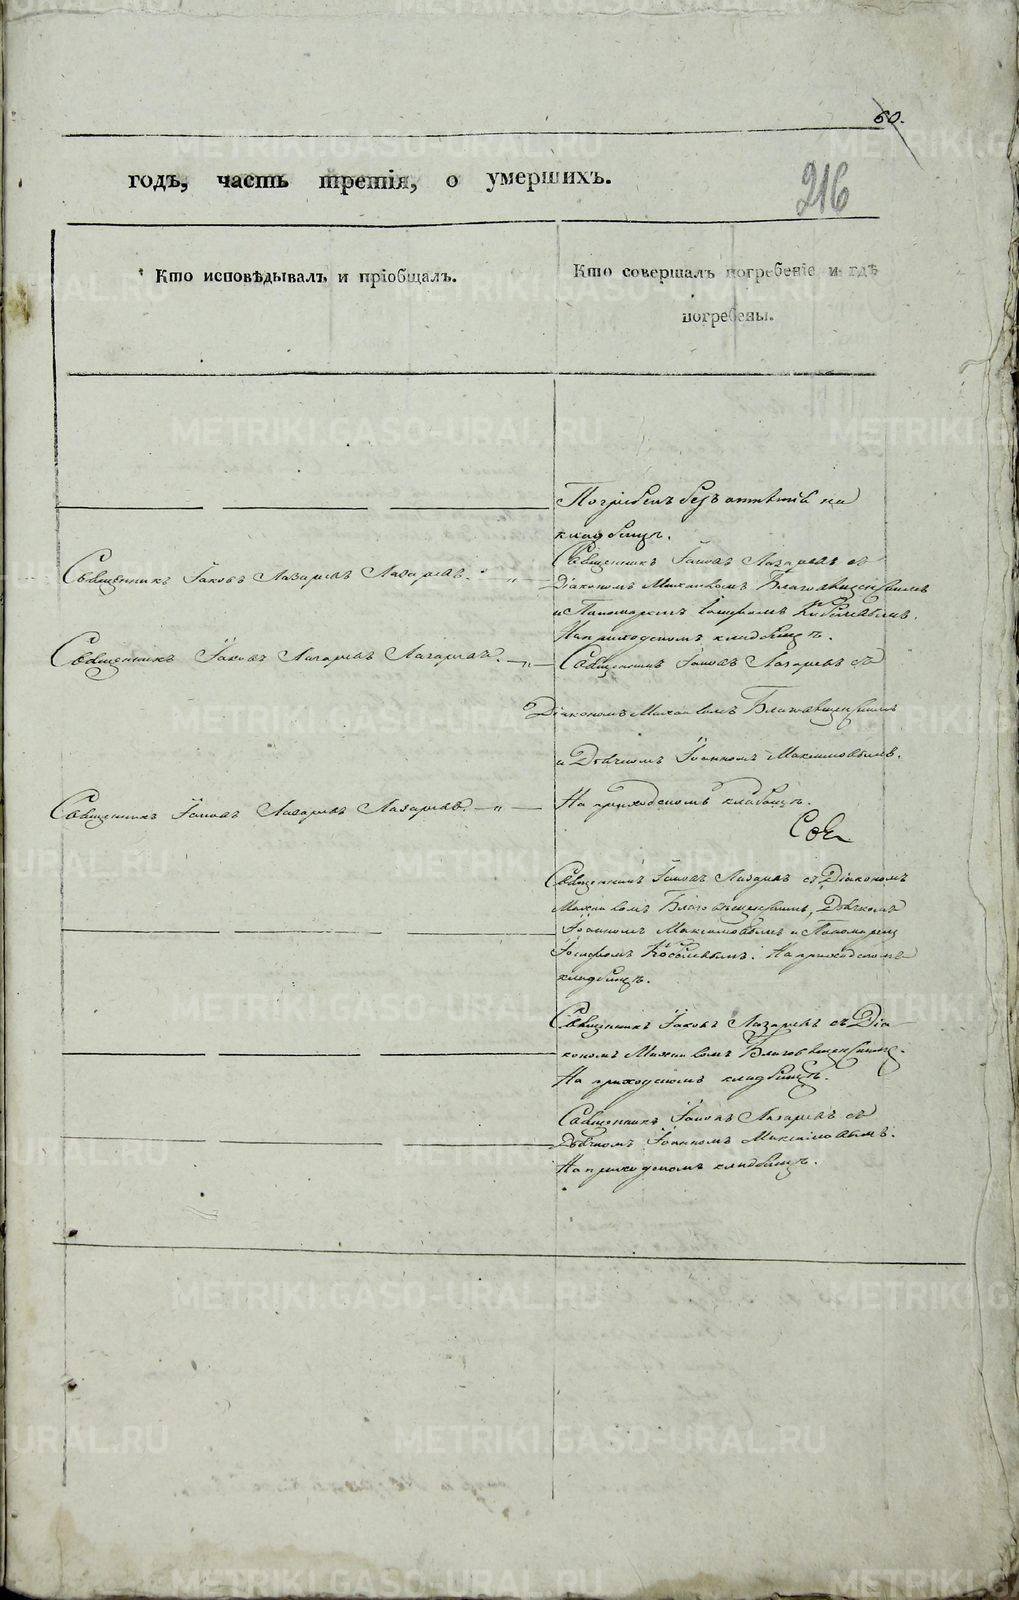 60.
216
годъ, часть третія, о умершихъ.
Кто исповѣдывалъ и пріобщалъ.
Кто совершалъ погребеніе и гдѣ
погребены.
Погребенъ безъ отпѣтія на
кладбищѣ.
Священникъ Іаковъ Лазаревъ Лазаревъ. — „ —
Священникъ Іаковъ Лазаревъ съ
Діакономъ Михаиломъ Благовѣщенскимъ
и Пономаремъ Іосифомъ Кобелевымъ.
На приходскомъ кладбищѣ.
Священникъ Іаковъ Лазаревъ Лазаревъ. — „ —
Священникъ Іаковъ Лазаревъ съ
Діакономъ Михаиломъ Благовѣщенскимъ
и Дьячкомъ Іоанномъ Максимовымъ.
Священникъ Іаковъ Лазаревъ Лазаревъ. — „ —
На приходскомъ кладбищѣ.
Священникъ Іаковъ Лазаревъ съ Діакономъ
Михаиломъ Благовѣщенскимъ, Дьячкомъ
Іоанномъ Максимовымъ и Пономаремъ
Іосифомъ Кобелевымъ. На приходскомъ
кладбищѣ.
Священникъ Іаковъ Лазаревъ съ Діа-
кономъ Михаиломъ Благовѣщенскимъ.
На приходскомъ кладбищѣ.
Священникъ Іаковъ Лазаревъ съ
Дьячкомъ Іоанномъ Максимовымъ.
На приходскомъ кладбищѣ.
METRIKI.GASO-URAL.RU